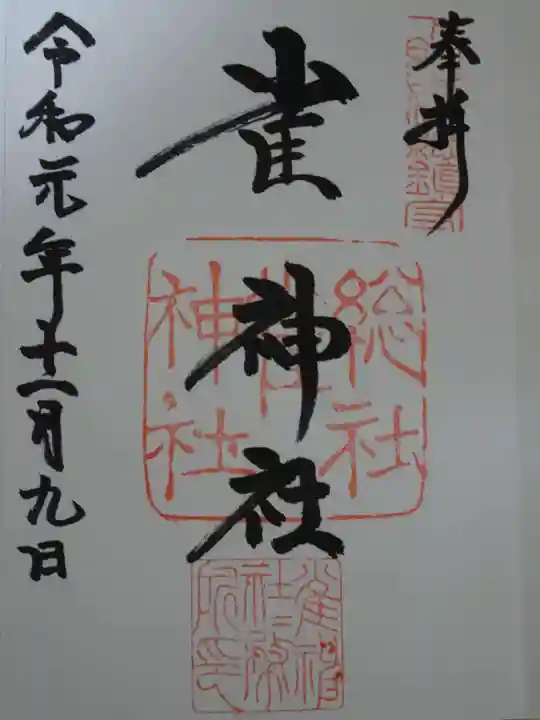 奉拝
雀神社
総社
雀
神社
令和元年十一月九日